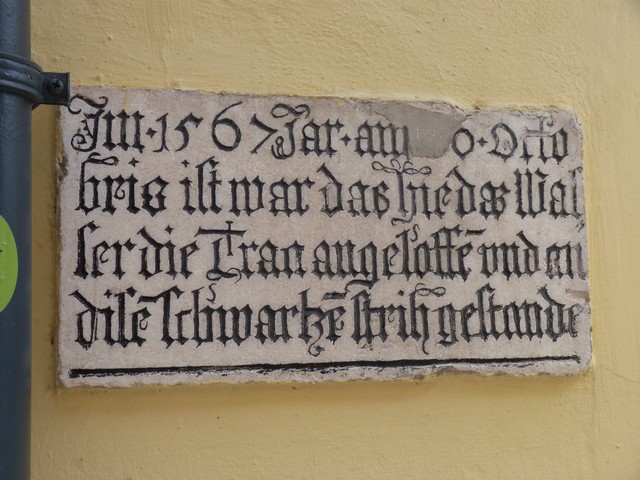 Im · 1567 Jar · am 0 · Octo
bris ist war das hie das Was
ser die Tran angeloffē vnd an
disē schwartzē strih gestande